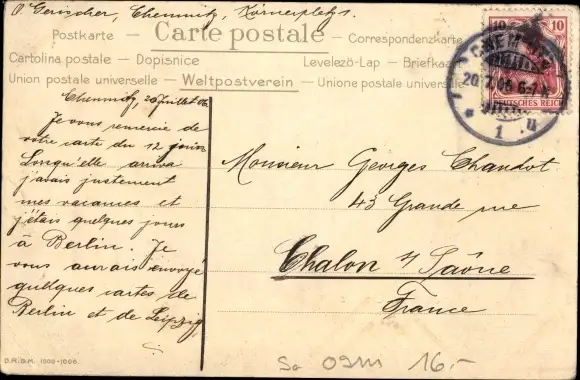 O. Gerischer, Chemnitz, Körnerplatz 1.
Postkarte — Carte postale — Correspondenzkarte
Cartolina postale — Dopisnice Levelező-Lap — Briefkaart
Union postale universelle — Weltpostverein — Unione postale universale
10 10
DEUTSCHES REICH
CHEMNITZ
20.7.06 6-7 N
1
Chemnitz, 20 Juillet 06.
Je vous remercie de
votre carte du 12 juin
Lorsqu'elle arriva
j'avais justement
mes vacances et
j'étais quelques jours
à Berlin. Je
vous aurais envoyé
quelques cartes de
Berlin et de Leipzig,
Monsieur Georges Chandot
43 Grande rue
Chalon s/ Saône
France
D.R.G.M.
16.-